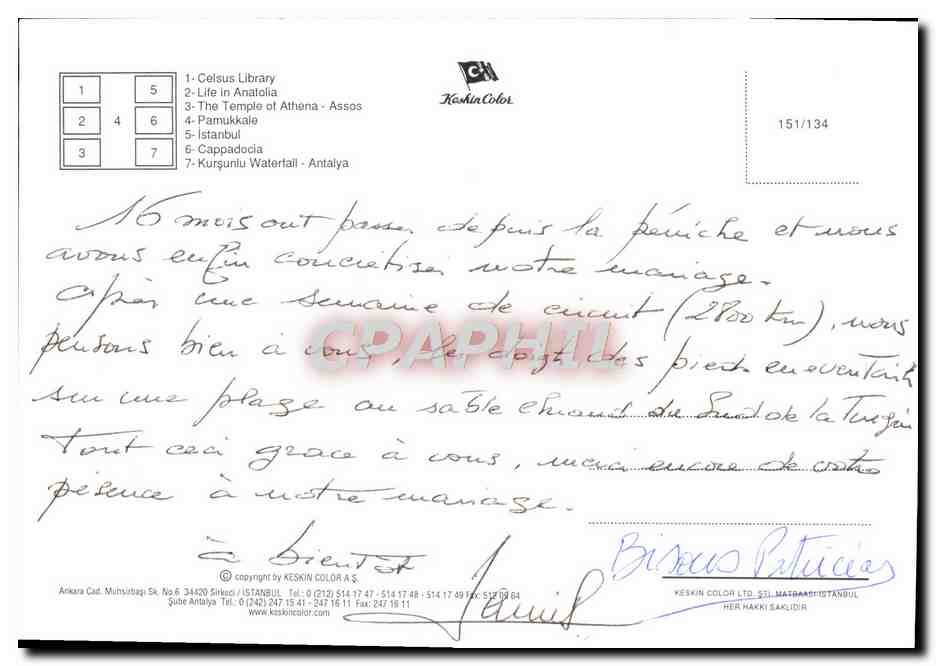 1- Celsus Library
2- Life in Anatolia
3- The Temple of Athena - Assos
4- Pamukkale
5- İstanbul
6- Cappadocia
7- Kurşunlu Waterfall - Antalya
1 5
2 4 6
3 7
Keskin Color
151/134
16 mois ont passer depuis la péniche et nous
avons enfin concrétiser notre mariage.
Après une semaine de circuit (2800 km), nous
pensons bien à vous, les doigt des pieds en éventail
sur une plage au sable chaud du Sud de la Turquie
Tout ceci grace à vous, merci encore de votre
présence à notre mariage.
à bientôt
Bisous
CPAPHIL
© copyright by KESKIN COLOR A.Ş.
Ankara Cad. Muhsirbaşı Sk. No.6 34420 Sirkeci / İSTANBUL Tel.: 0 (212) 514 17 47 - 514 17 48 - 514 17 49 Fax: 512 09 64
Şube Antalya Tel.: 0 (242) 247 15 41 - 247 16 11 Fax: 247 16 11
www.keskincolor.com
KESKIN COLOR LTD. ŞTİ. MATBAASI-İSTANBUL
HER HAKKI SAKLIDIR